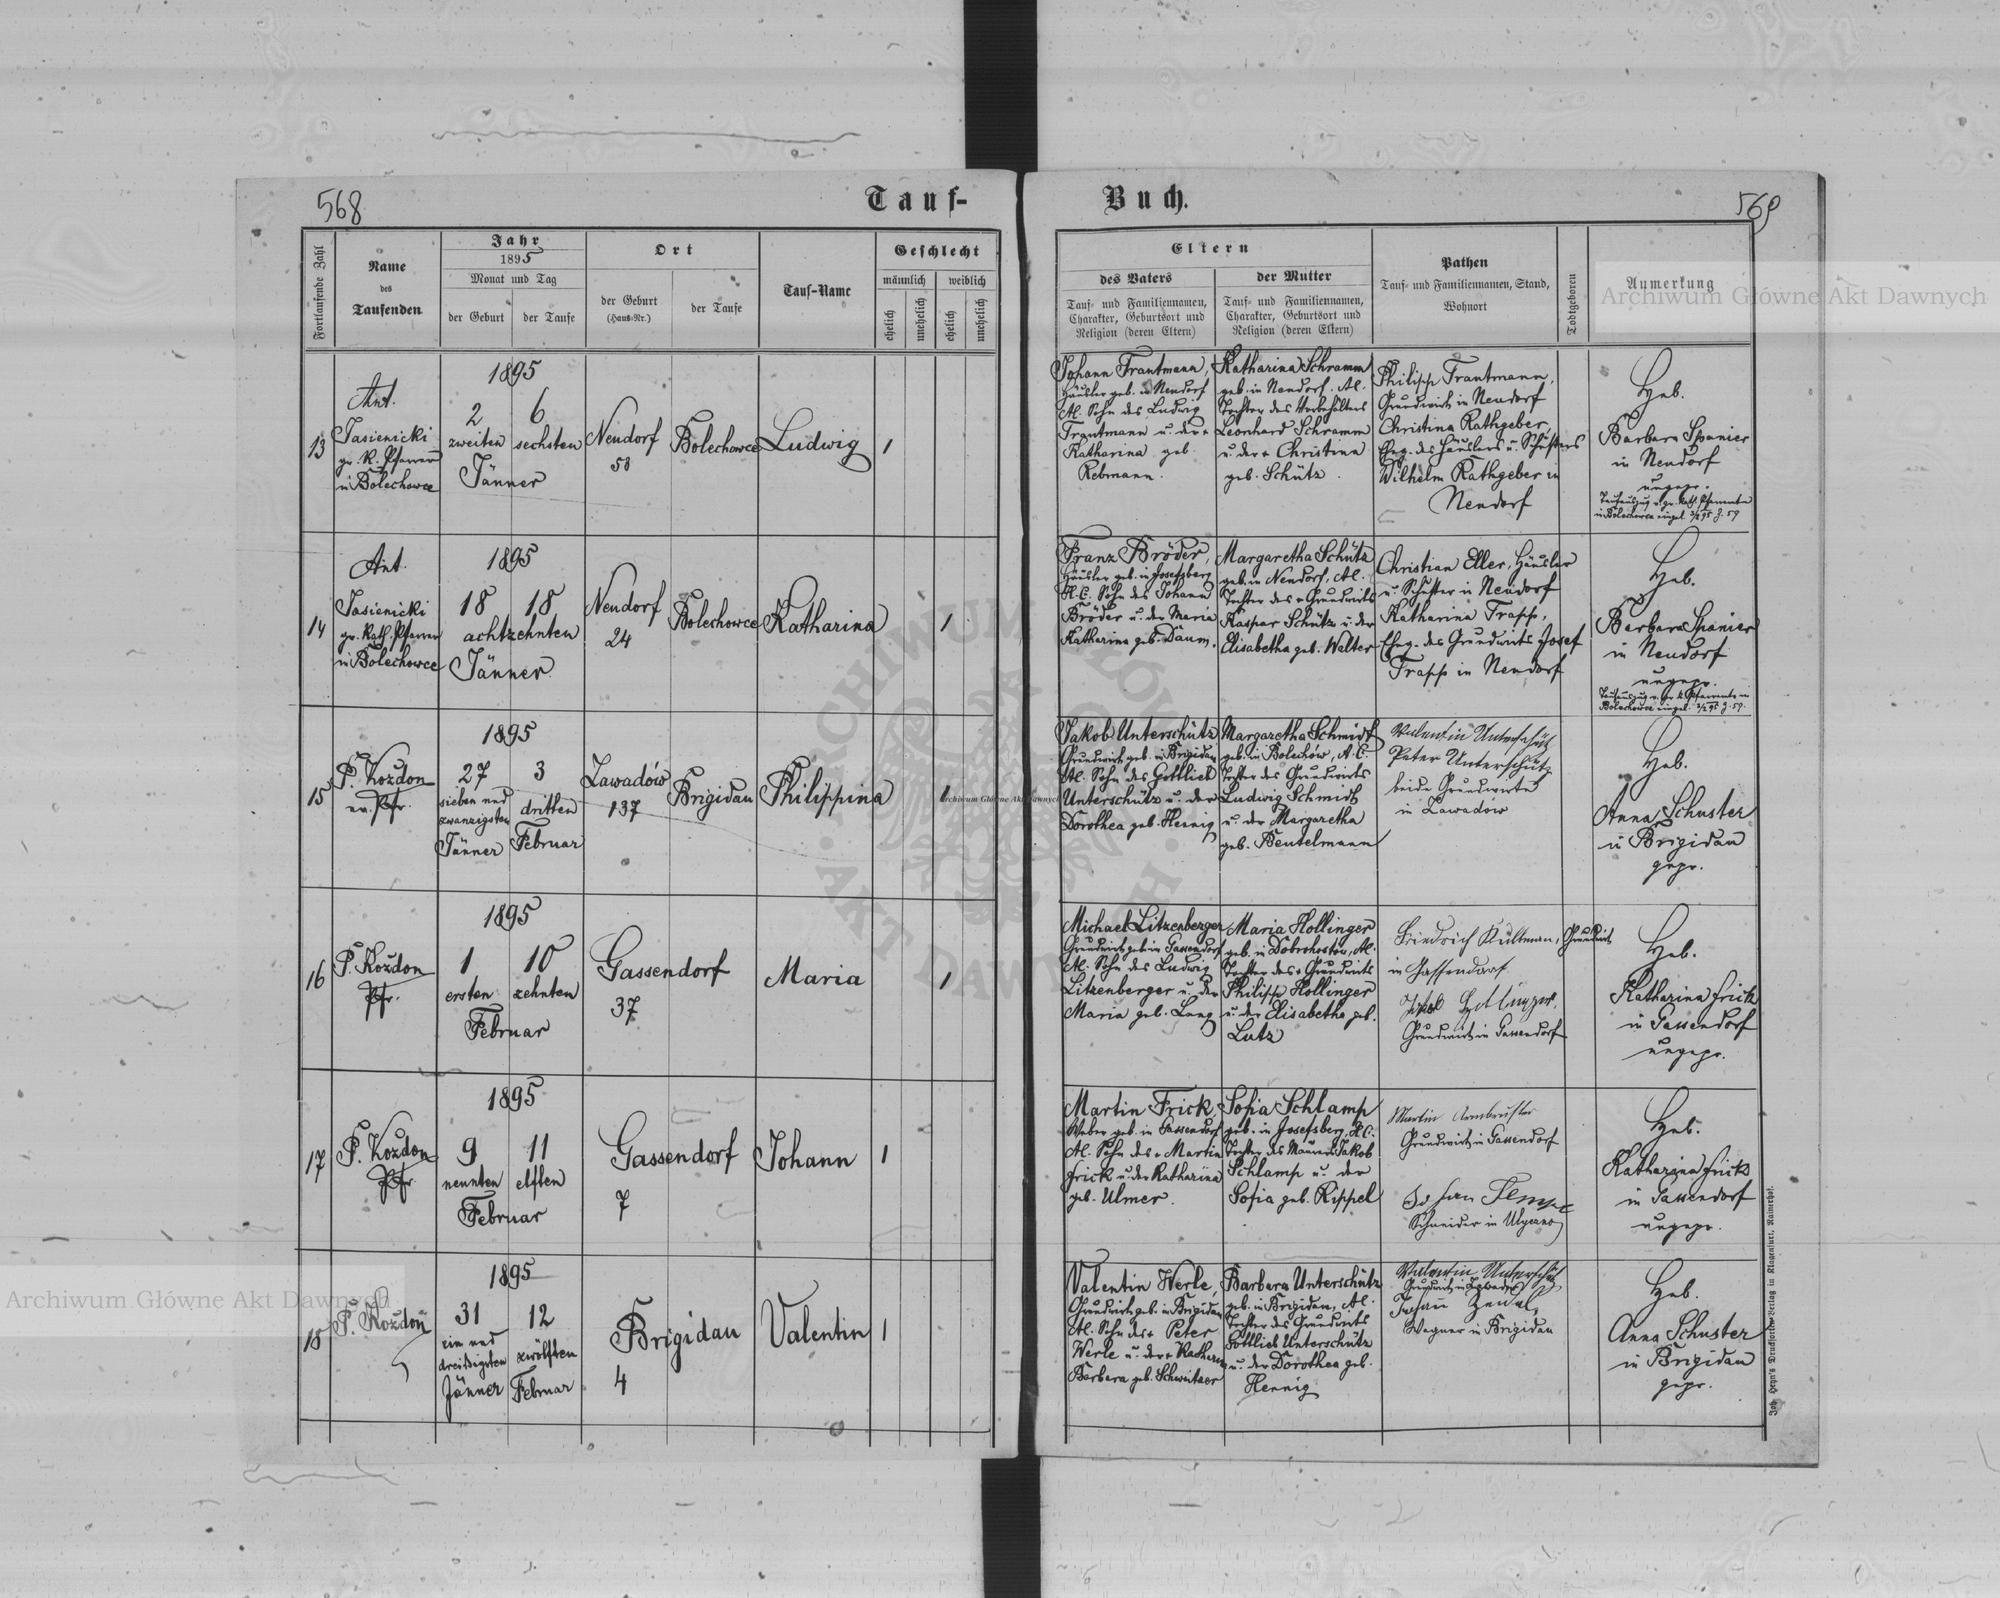 568
Tauf-
Buch.
569
Fortlaufende Zahl
Name
des
Taufenden
Jahr
1895
Monat und Tag
der Geburt
der Taufe
Ort
der Geburt
(Haus-Nr.)
der Taufe
Tauf-Name
Geschlecht
männlich
weiblich
ehelich
unehelich
ehelich
unehelich
Eltern
des Vaters
Tauf- und Familiennamen,
Charakter, Geburtsort und
Religion (deren Eltern)
der Mutter
Tauf- und Familiennamen,
Charakter, Geburtsort und
Religion (deren Eltern)
Pathen
Tauf- und Familiennamen, Stand,
Wohnort
Todtgeboren
Anmerkung
13
Ant.
Jasienicki
gr. K. Pfarrer
in Bolechowce
1895
2
zweiten
6
sechsten
Jänner
Neudorf
58
Bolechowce
Ludwig
1
Johann Trautmann,
Häusler geb. in Neudorf
Al. Sohn des Ludwig
Trautmann u. der +
Katharina geb.
Rebmann.
Katharina Schramm
geb. in Neudorf, Al.
Tochter des Vorbehälters
Leonhard Schramm
u. der + Christina
geb. Schütz.
Philipp Trautmann,
Grundwirt in Neudorf
Christina Rathgeber,
Eheg. des Häuslers u. Schusters
Wilhelm Rathgeber in
Neudorf
Heb.
Barbara Spanier
in Neudorf
ungepr.
14
Ant.
Jasienicki
gr. Kath. Pfarrer
in Bolechowce
1895
18
18
achtzehnten
Jänner
Neudorf
24
Bolechowce
Katharina
1
Franz Bröder,
Häusler geb. in Josefsberg
H.C. Sohn des Johann
Bröder u. der Maria
Katharina geb. Daum.
Margaretha Schütz
geb. in Neudorf, Al.
Tochter des + Grundwirts
Kaspar Schütz u. der
Elisabetha geb. Walter
Christian Eller, Häusler
u. Schuster in Neudorf
Katharina Trapp,
Eheg. des Grundwirts Josef
Trapp in Neudorf
Heb.
Barbara Spanier
in Neudorf
ungepr.
15
P. Kozdon
ev. Pfr.
1895
27
sieben und
zwanzigsten
Jänner
3
dritten
Februar
Zawadów
137
Brigidau
Philippina
1
Jakob Unterschütz
Grundwirt geb. in Brigidau
Al. Sohn des Gottlieb
Unterschütz u. der
Dorothea geb. Hennig
Margaretha Schmidt
geb. in Bolechów, A.C.
Tochter des Grundwirts
Ludwig Schmidt
u. der Margaretha
geb. Beutelmann
Valentin Unterschütz
Peter Unterschütz
beide Grundwirte
in Zawadów
Heb.
Anna Schuster
in Brigidau
gepr.
16
P. Kozdon
Pfr.
1895
1
ersten
10
zehnten
Februar
Gassendorf
37
Maria
1
Michael Litzenberger
Grundwirt geb. in Gassendorf
Al. Sohn des Ludwig
Litzenberger u. der
Maria geb. Lang
Maria Hollinger
geb. in Dobrohostów, Al.
Tochter des + Grundwirts
Philipp Hollinger
u. der Elisabetha geb.
Lutz
Friedrich Kullmann, Grundwirt
in Gassendorf
Grundwirt in Gassendorf
Heb.
Katharina Frick
in Gassendorf
ungepr.
17
P. Kozdon
Pfr.
1895
9
neunten
11
elften
Februar
Gassendorf
7
Johann
1
Martin Frick,
Weber geb. in Gassendorf
Al. Sohn des + Martin
Frick u. der Katharina
geb. Ulmer.
Sofia Schlamp
geb. in Josefsberg, H.C.
Tochter des Maurers Jakob
Schlamp u. der
Sofia geb. Rippel
Martin Armbruster
Grundwirt in Gassendorf
Schneider in Ulyczno
Heb.
Katharina Frick
in Gassendorf
ungepr.
18
P. Kozdon
1895
31
ein und
dreißigsten
Jänner
12
zwölften
Februar
Brigidau
4
Valentin
1
Valentin Werle,
Grundwirt geb. in Brigidau
Al. Sohn des + Peter
Werle u. der + Kathar.
Barbara geb. Schweitzer
Barbara Unterschütz
geb. in Brigidau, Al.
Tochter des Grundwirts
Gottlieb Unterschütz
u. der Dorothea geb.
Hennig
Valentin Unterschütz
Grundwirt in Zawadów
Wagner in Brigidau
Heb.
Anna Schuster
in Brigidau
gepr.
Joh. Heyn's Druckforten-Verlag in Klagenfurt, Rainerhof.
Archiwum Główne Akt Dawnych
Archiwum Główne Akt Dawnych
Archiwum Główne Akt Dawnych
ARCHIWUM GŁÓWNE
AKT DAWNYCH